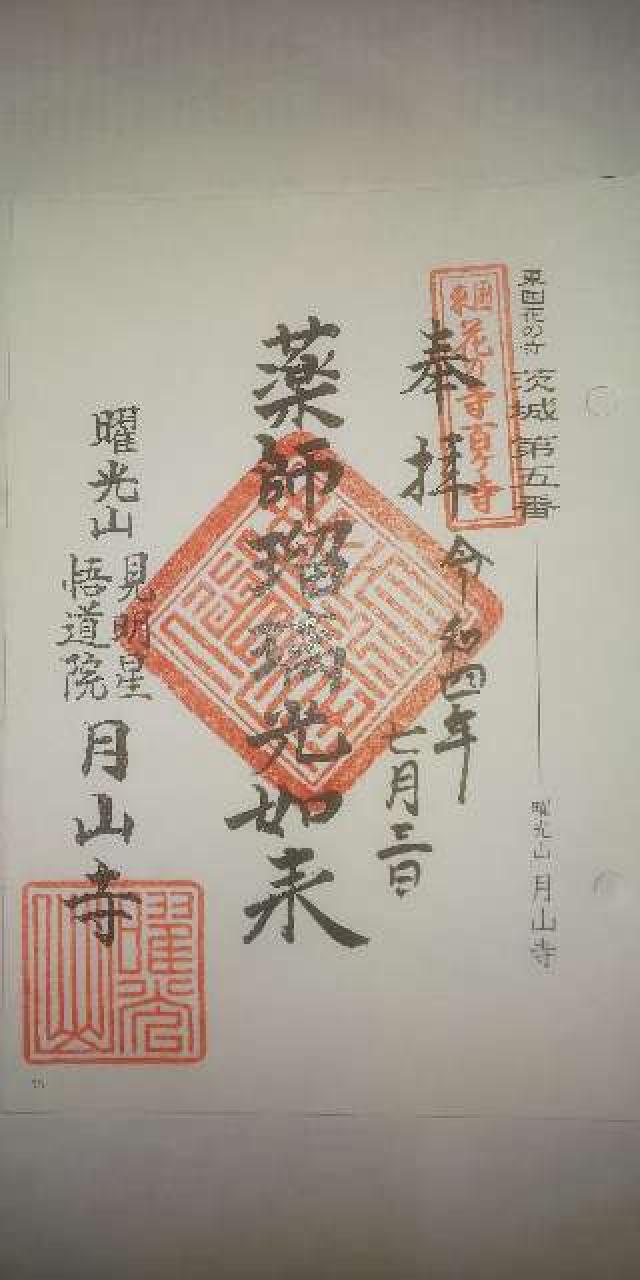 東国花の寺 茨城 第五番
曜光山 月山寺
東国花の寺百ヶ寺
奉拝
令和四年
七月三日
薬師瑠璃光如来
曜光山
見明星
悟道院
月山寺
曜光山